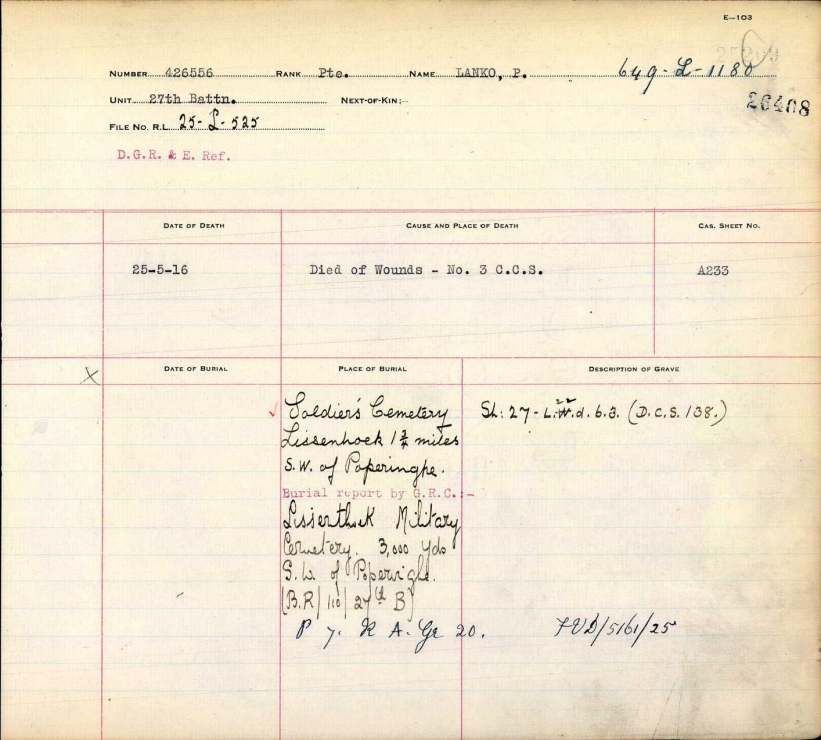 E—103
NUMBER 426556 RANK Pte. NAME LANKO, P. 649-L-1180
UNIT 27th Battn. NEXT-OF-KIN:- 26408
FILE NO. R.L. 25-L-525
D.G.R. & E. Ref.
DATE OF DEATH CAUSE AND PLACE OF DEATH CAS. SHEET NO.
25-5-16 Died of Wounds - No. 3 C.C.S. A233
X DATE OF BURIAL PLACE OF BURIAL DESCRIPTION OF GRAVE
Soldier's Cemetery Sh: 27-L.22.d.6.3. (D.C.S. 138.)
Lissenhoek 1¾ miles
S.W. of Poperinghe.
Burial report by G.R.C.:-
Lissenthoek Military
Cemetery. 3,000 yds
S.W. of Poperinghe.
(B.R/110/27th B)
P 7. R A. Gr 20. FUD/5161/25